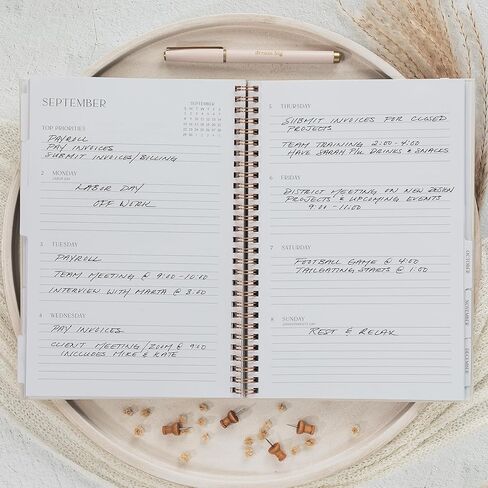 dream big
SEPTEMBER
SEPTEMBER
TOP PRIORITIES
PAYROLL
PAY INVOICES
SUBMIT INVOICES/BILLING
2 MONDAY
LABOR DAY
LABOR DAY
OFF WORK
3 TUESDAY
PAYROLL
TEAM MEETING @ 9:00 - 10:00
INTERVIEW WITH MARTA @ 3:00
4 WEDNESDAY
PAY INVOICES
CLIENT MEETING/ZOOM @ 9:30
INCLUDES MIKE & KATE
5 THURSDAY
SUBMIT INVOICES FOR CLOSED
PROJECTS
TEAM TRAINING 2:00 - 4:00
HAVE SARAH P/U DRINKS & SNACKS
6 FRIDAY
DISTRICT MEETING ON NEW DESIGN
PROJECTS & UPCOMING EVENTS
9:00 - 11:00
7 SATURDAY
FOOTBALL GAME @ 4:00
TAILGATING STARTS @ 1:00
8 SUNDAY
GRANDPARENT'S DAY
REST & RELAX
OCTOBER
NOVEMBER
DECEMBER